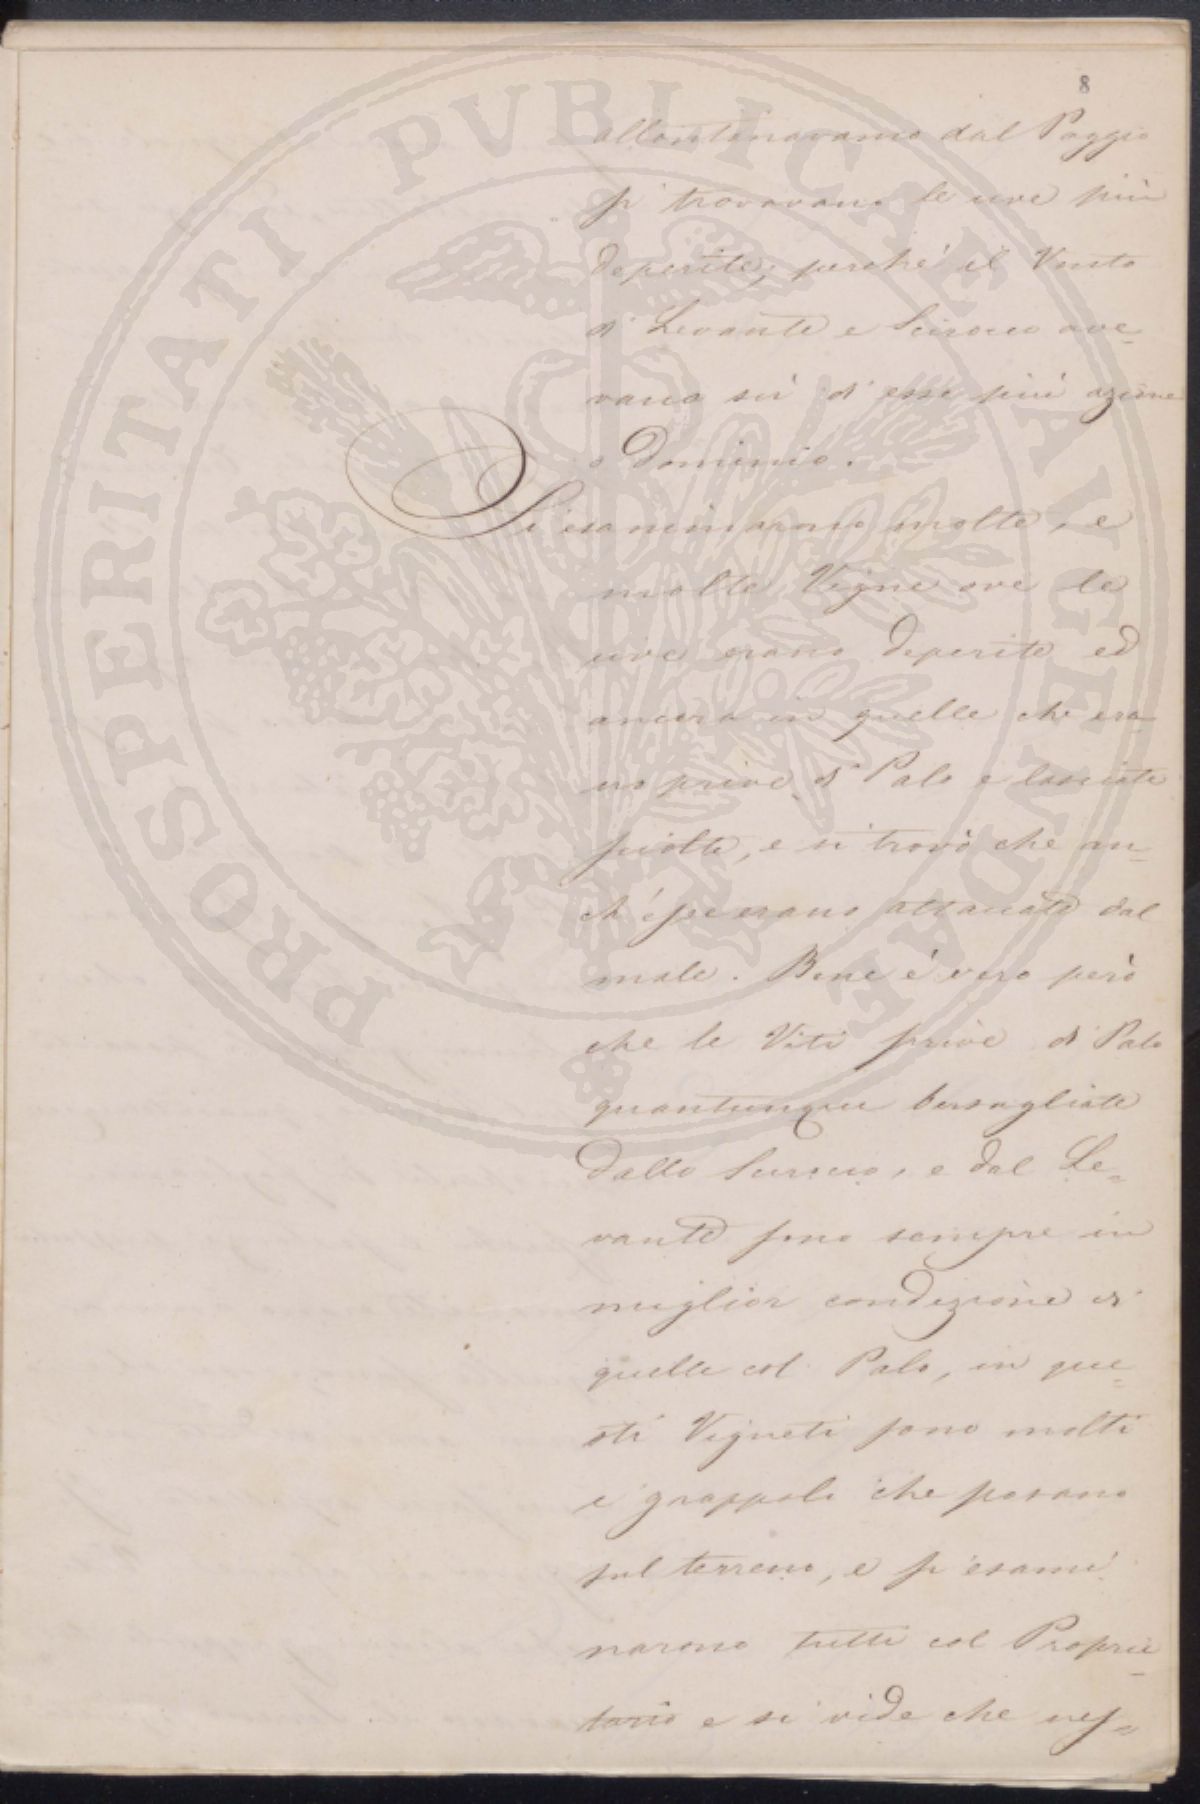 PROSPERITATI PVBLICAE AVGENDAE
8
allontanavamo dal Poggio
si trovavano le uve più
deperite, perchè il Vento
di Levante e Scirocco ave-
vano sù di esse più azione
o dominio.
Si esaminarono molte, e
molte Vigne ove le
uve erano deperite ed
ancora in quelle che era-
no prive di Palo e lasciate
sciolte, e si trovò che an-
ch'esse erano attaccate dal
male. Bene è vero però
che le Viti prive di Palo
quantunque bersagliate
dallo Scirocco, e dal Le-
vante sono sempre in
miglior condizione di
quelle col Palo, in que-
sti Vigneti sono molti
i grappoli che posano
sul terreno, e si esami
narono tutti col Proprie-
tario e si vide che nes-